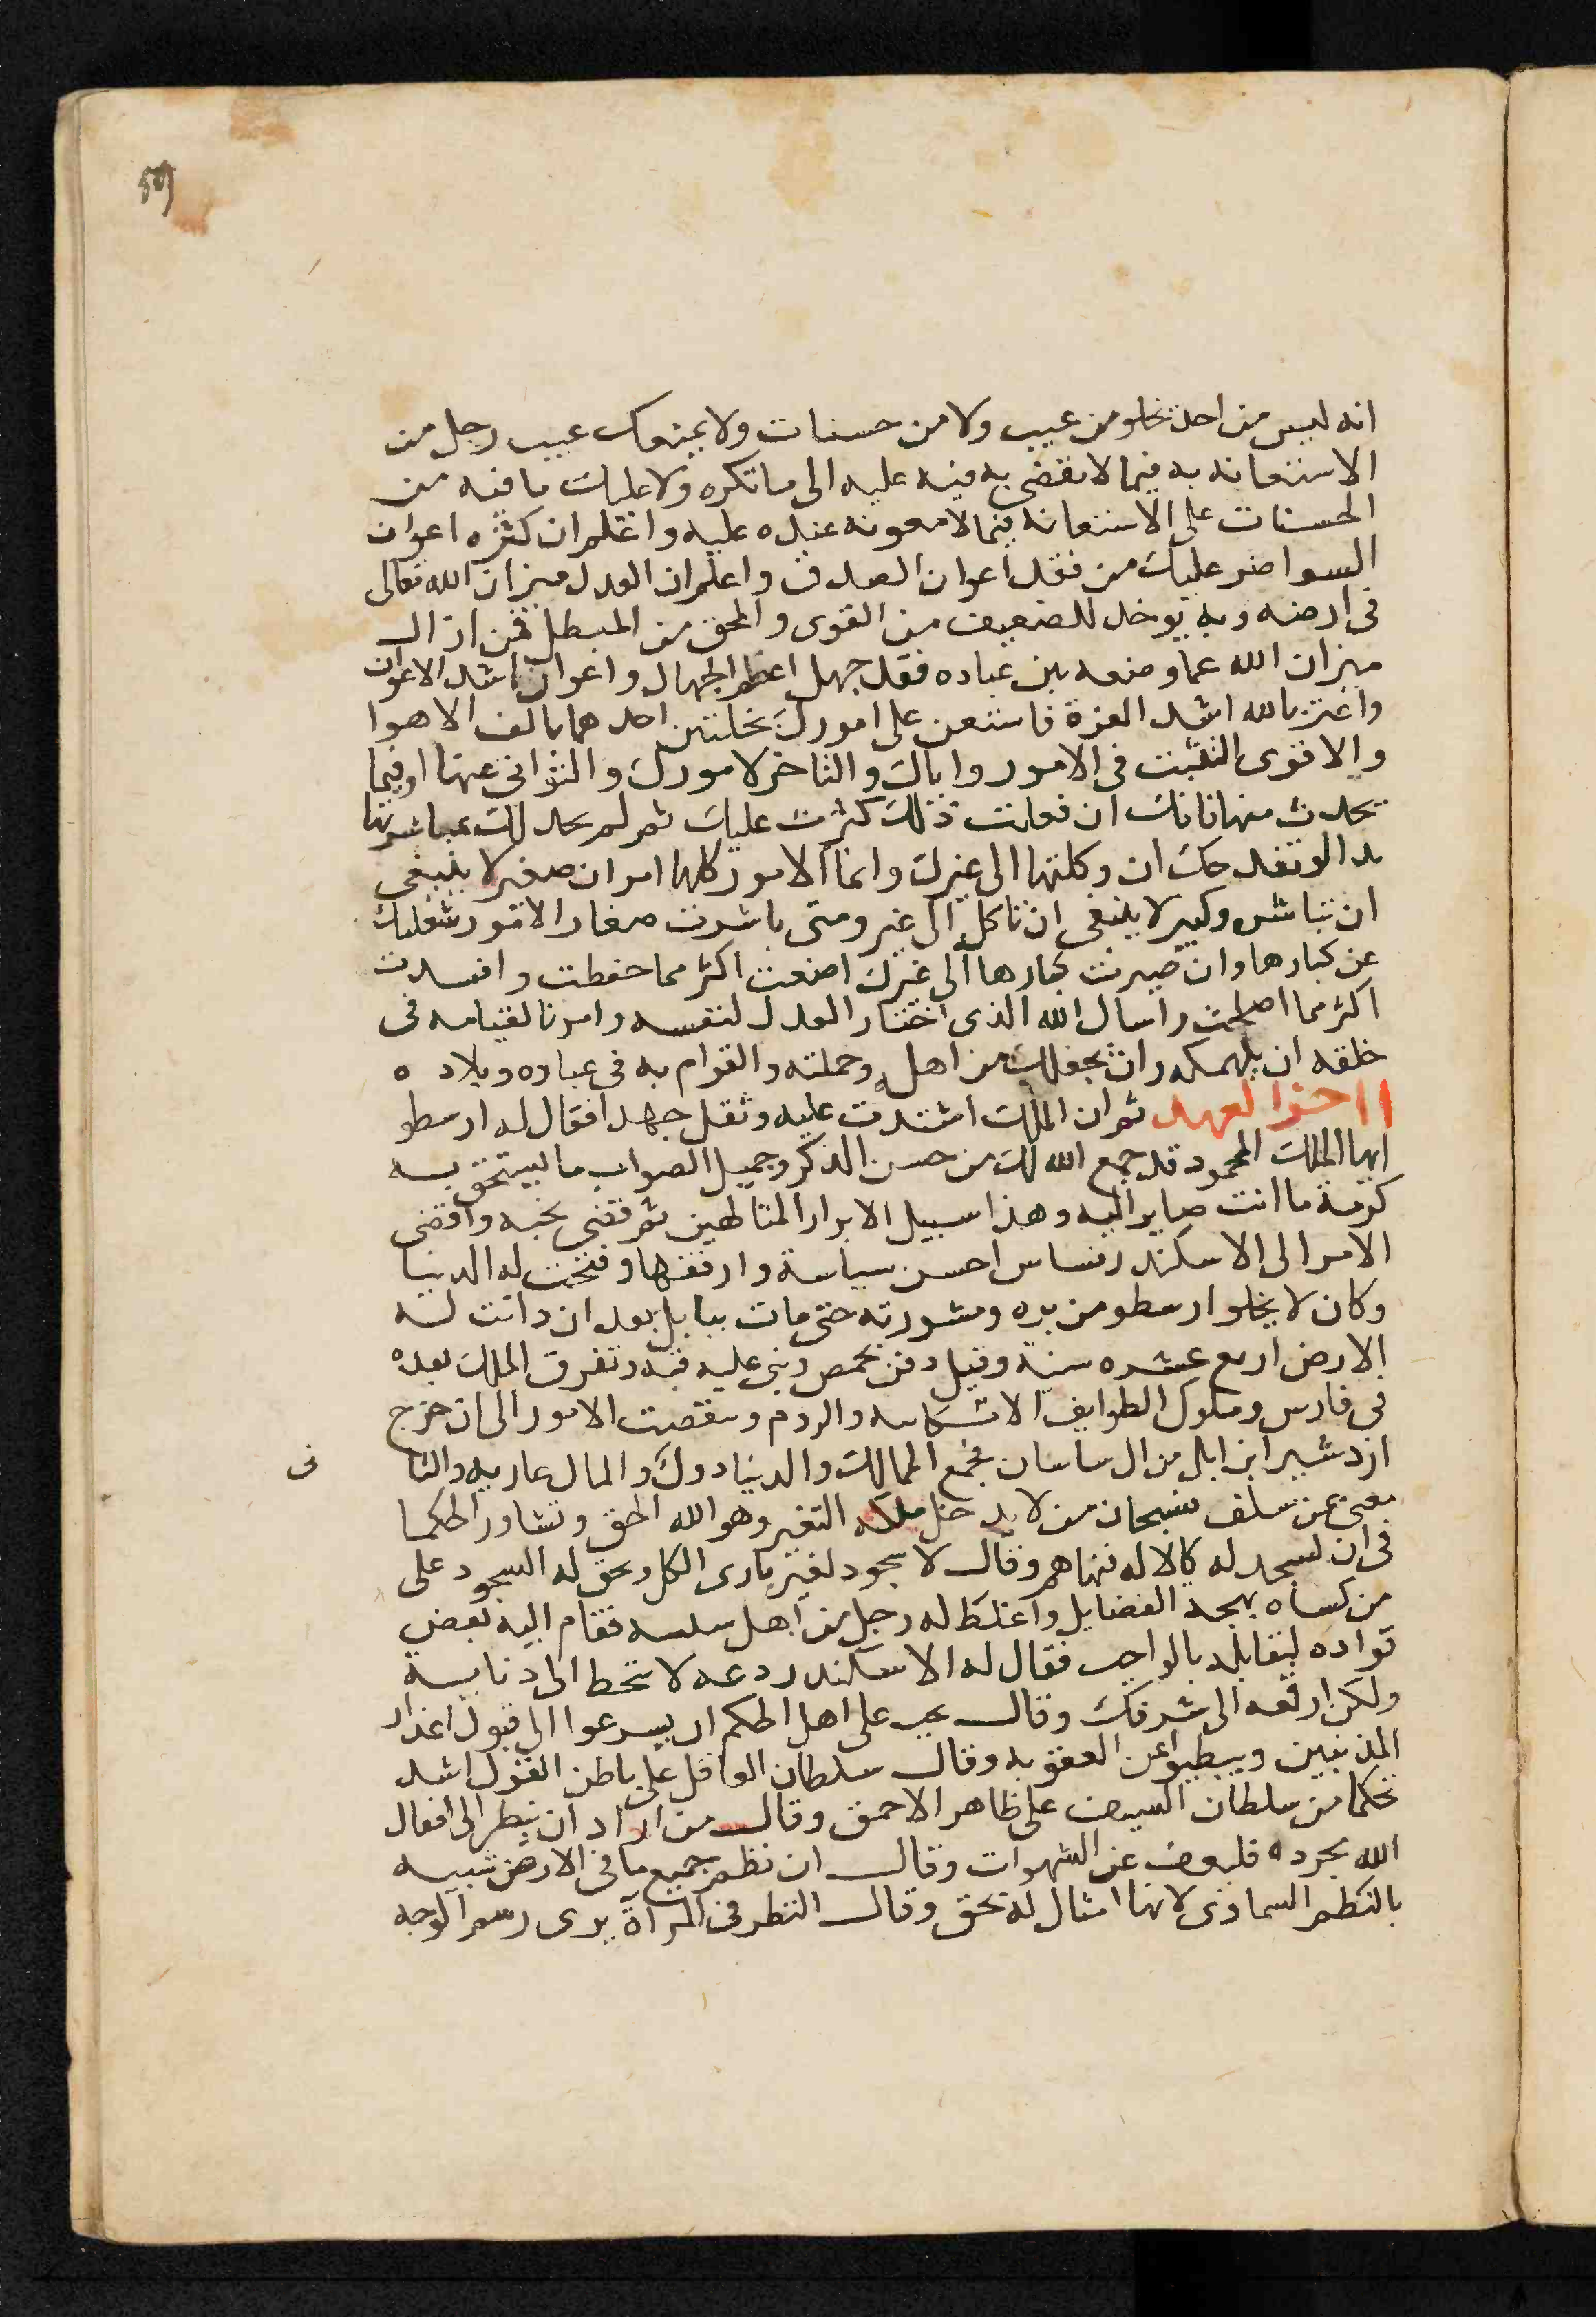 انه ليس من احد يخلو من عيب ولا من حسنات ولا يمنعك عيب رجل من
الاستعانه به فيما لا نقضى به فيه عليه الى ما تكره ولا عليك ما فيه من
الحسنات على الاستعانه فيما لا معونه عنده عليه واعلم ان كثره اعوان
السوا ضر عليك من فقد اعوان الصدق واعلم ان العدل ميزان الله تعالى
فى ارضه وبه يوخذ للضعيف من القوى والمحق من المبطل فمن ازال
ميزان الله عما وضعه بين عباده فقد جهل اعظم الجهال واعوان اشد الاعوان
واغتر بالله اشد الغزة فاستعن على امورك بخلتين احدهما بالف الاهوا
والاقوى التثبت فى الامور واياك والتاخر لامورك والتوانى عنها او فيما
يحدث منها فانك ان فعلت ذلك كثرت عليك ثم لم يحد لك بمباشرتها
بدا لو تفدحك ان وكلتها الى غيرك وانما الامور كلها امران صغير لا ينبغى
ان تباشره وكبير لا ينبغى ان تاكل الى غير ومتى باشرت صغار الامور شغلتك
عن كبارها وان صيرت كبارها الى غيرك اضعت اكثر مما حفظت وافسدت
اكثر مما اصلحت واسال الله الذى اختار العدل لنفسه وامر بالقيامه فى
خلقه ان يلهمكه وان يجعلك من اهله وحملته والقوام به فى عباده وبلاده
اخر العهد ثم ان الملك اشتدت عليه وثقل جهدا فقال له ارسطو
ايها الملك المحمود قد جمع الله لك من حسن الذكر وجميل الصواب ما ليستحق به
كرمة ما انت صاير اليه وهذا سبيل الابرار المتالهين ثم قضى نحبه وافضى
الامر الى الاسكندر فساس احسن سياسة وارفقها وفتحت له الدنيا
وكان لا يخلو ارسطو من بره ومشورته حتى مات ببابل بعد ان دانت له
الارض اربع عشره سنة وقيل دفن بحمص وبنى عليه قبه وتفرق الملك بعده
فى فارس وملوك الطوايف الاشكانيه والروم ونقصت الامور الى ان خرج
ازدشير ابن ابل من ال ساسان فجمع الممالك والدنيا دول والمال عاريه والتا
نى
معنى عن سلف فسبحان من لا يدخل ملكه التغير وهو الله الحق وتشاور الحكما
فى ان نسجد له كالاله فنهاهم وقال لا سجود لغير بارى الكل وحق له السجود على
من كساه بهجة الفضايل واغلظ له رجل من اهل فقام اليه بعض
قواده ليقابله بالواجب فقال له الاسكندر دعه لا تنحط الى دنايسه
ولكن ارفعه الى شرفك وقال يجب على اهل الحكم ان يسرعوا الى قبول اعذار
المذنبين ويبطيوا عن العقوبه وقال سلطان العاقل على باطن العقول اشد
تحكما من سلطان السيف على ظاهر الاحمق وقال من اراد ان ينظر الى افعال
الله مجرده فليعف عن الشهوات وقال ان نظم جميع ما فى الارض شبيه
بالنظم السماوى لانها امثال له بحق وقال النظر فى المرآة يرى رسم الوجه